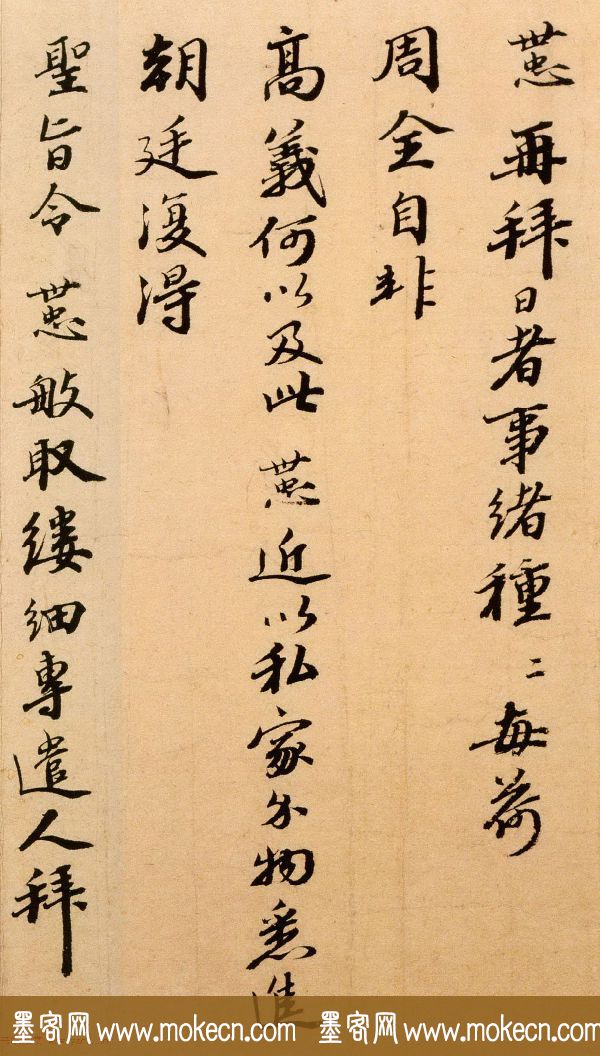 世忠再拜日者事緒種〻每荷
周全自非
高義何以及此世忠近以私家分物悉進
朝廷復得
聖旨令世忠般取縷細專遣人拜
墨客网 www.mokecn.com 墨客网 www.mokecn.com